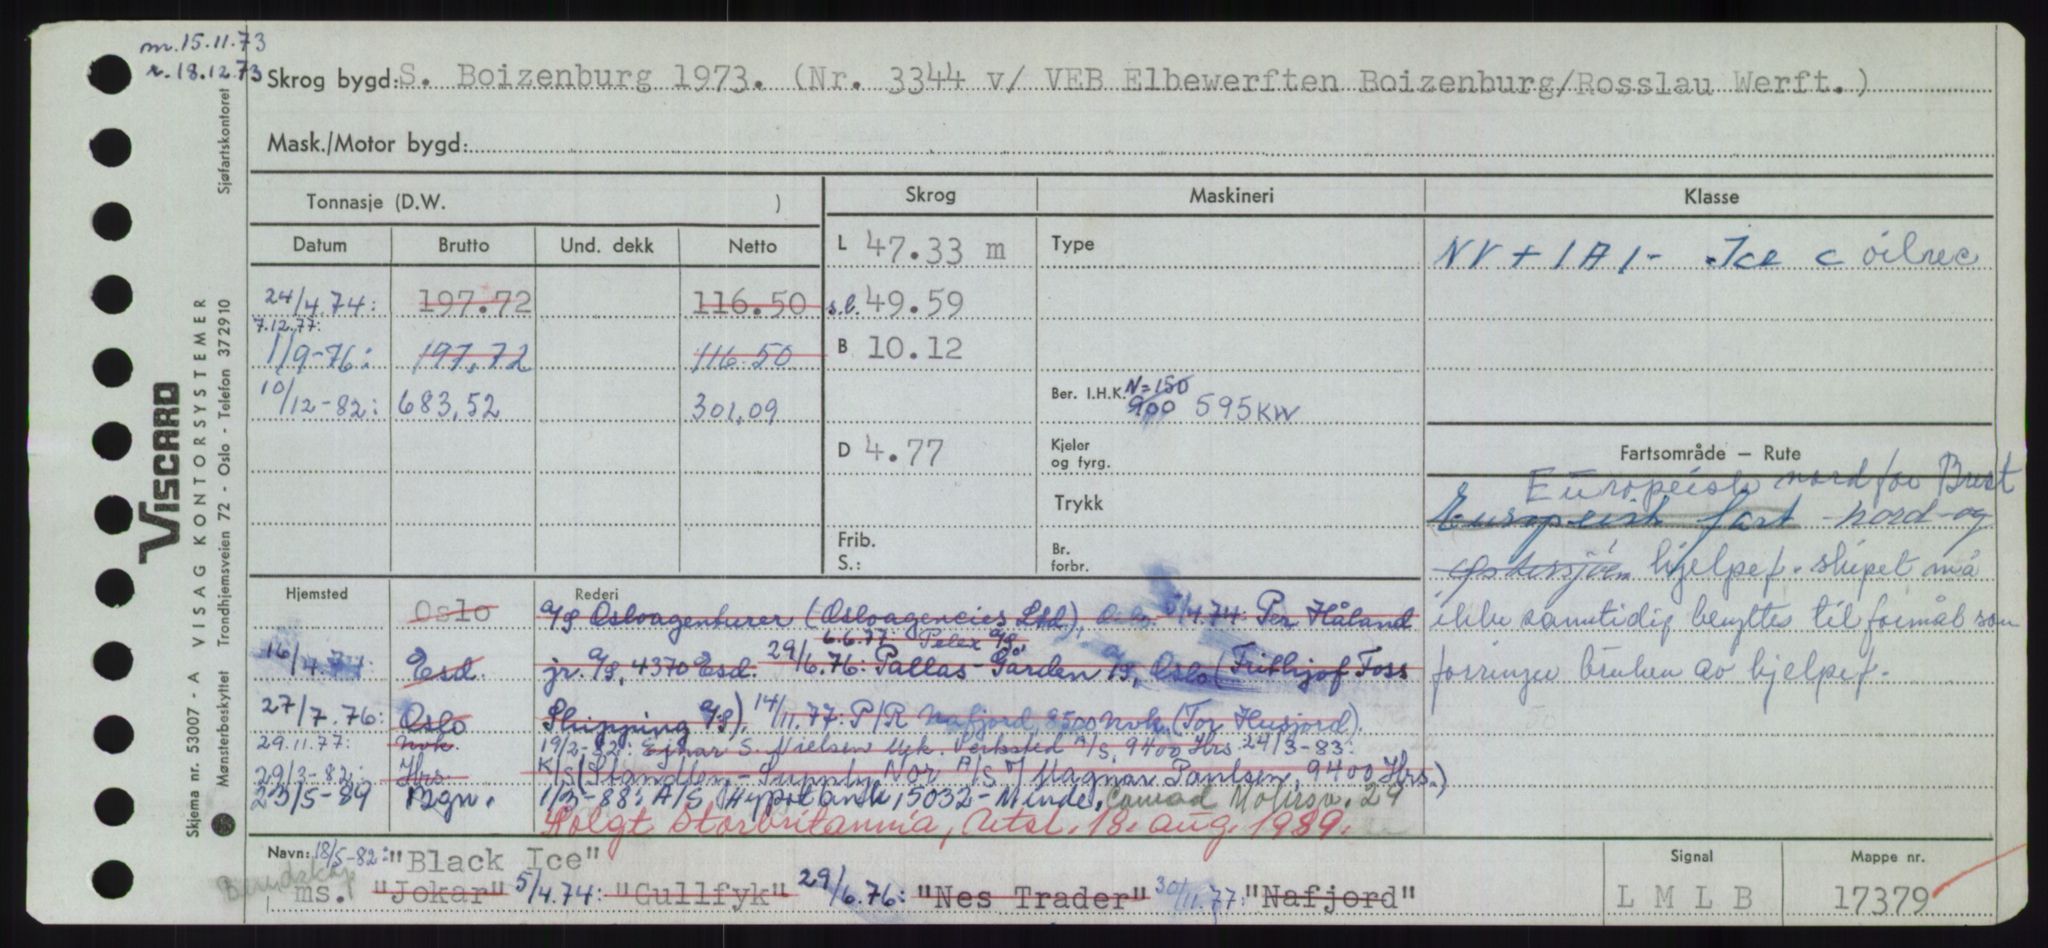 m.15.11.73
r.18.12.73
Skrog bygd: S. Boizenburg 1973. (Nr. 3344 v/ VEB Elbewerften Boizenburg/Rosslau Werft.)
Mask./Motor bygd:
Tonnasje (D.W. )
Skrog
Maskineri
Klasse
Datum Brutto Und. dekk Netto
L 47.33 m
Type
NV + 1 A 1 - Ice C oilrec
24/4.74: 197.72 116.50
s.l. 49.59
7.12.77:
1/9-76: 197,72 116.50
B 10.12
10/12-82: 683,52 301,09
Ber. I.H.K. N=150
900 595KW
D 4.77
Kjeler
og fyrg.
Fartsområde — Rute
Trykk
Europeisk nord for Brest
Europeisk fart nord-og
Frib.
S.:
Br.
forbr.
østersjøen hjelpef. skipet må
ikke samtidig benyttes til formål som
hjelpef.
Hjemsted
Rederi
Oslo A/S Osloagenturer (Osloagencies Ltd), Oslo. 5/4.74: Per Håland
6.6.77 Pelex A/S
16/4.77: Esd. jr. A/S, 4370 Esd. 29/6.76: Pallas-Garden A/S, Oslo (Frithjof Foss
27/7.76: Oslo Shipping A/S). 14/11.77: P/R Nafjord, 8500 Nvk. (Tor Husjord).
29.11.77: Nvk. 19/2-82: Ejnar S. Nielsen Mek. Verksted A/S, 9400 Hrs. 24/3-83:
29/3-82: Hrs. K/S (Standby-Supply Nor A/S v/ Magnar Paulsen, 9400 Hrs.)
23/5-89 Bgn. 1/3-88: A/S Hypotbank, 5032-Minde, Conrad Mohrsv. 29
Solgt Storbritannia, Utsl. 18. aug. 1989.
Navn: 18/5-82: "Black Ice"
Beredskap
ms. "Jokar" 5/4.74: "Gullfyk" 29/6.76: "Nes Trader" 30/11.77: "Nafjord"
Signal
L M L B
Mappe nr.
17379
VISCARD
Skjema nr. 53007 - A VISAG KONTORSYSTEMER
Mønsterbeskyttet Trondhjemsveien 72 - Oslo - Telefon 372910 Sjøfartskontoret